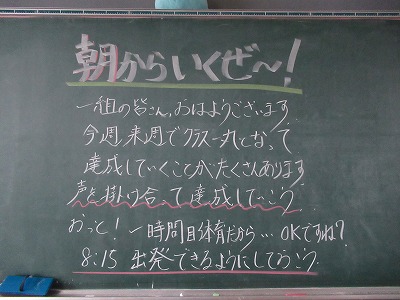 朝からいくぜ〜!
一組の皆さん、おはようございます
今週来週でクラス一丸となって
達成していくことがたくさんあります
声を掛け合って達成していこう
おっと!一時間目体育だから…OKですね?
8:15 出発できるようにしておこう